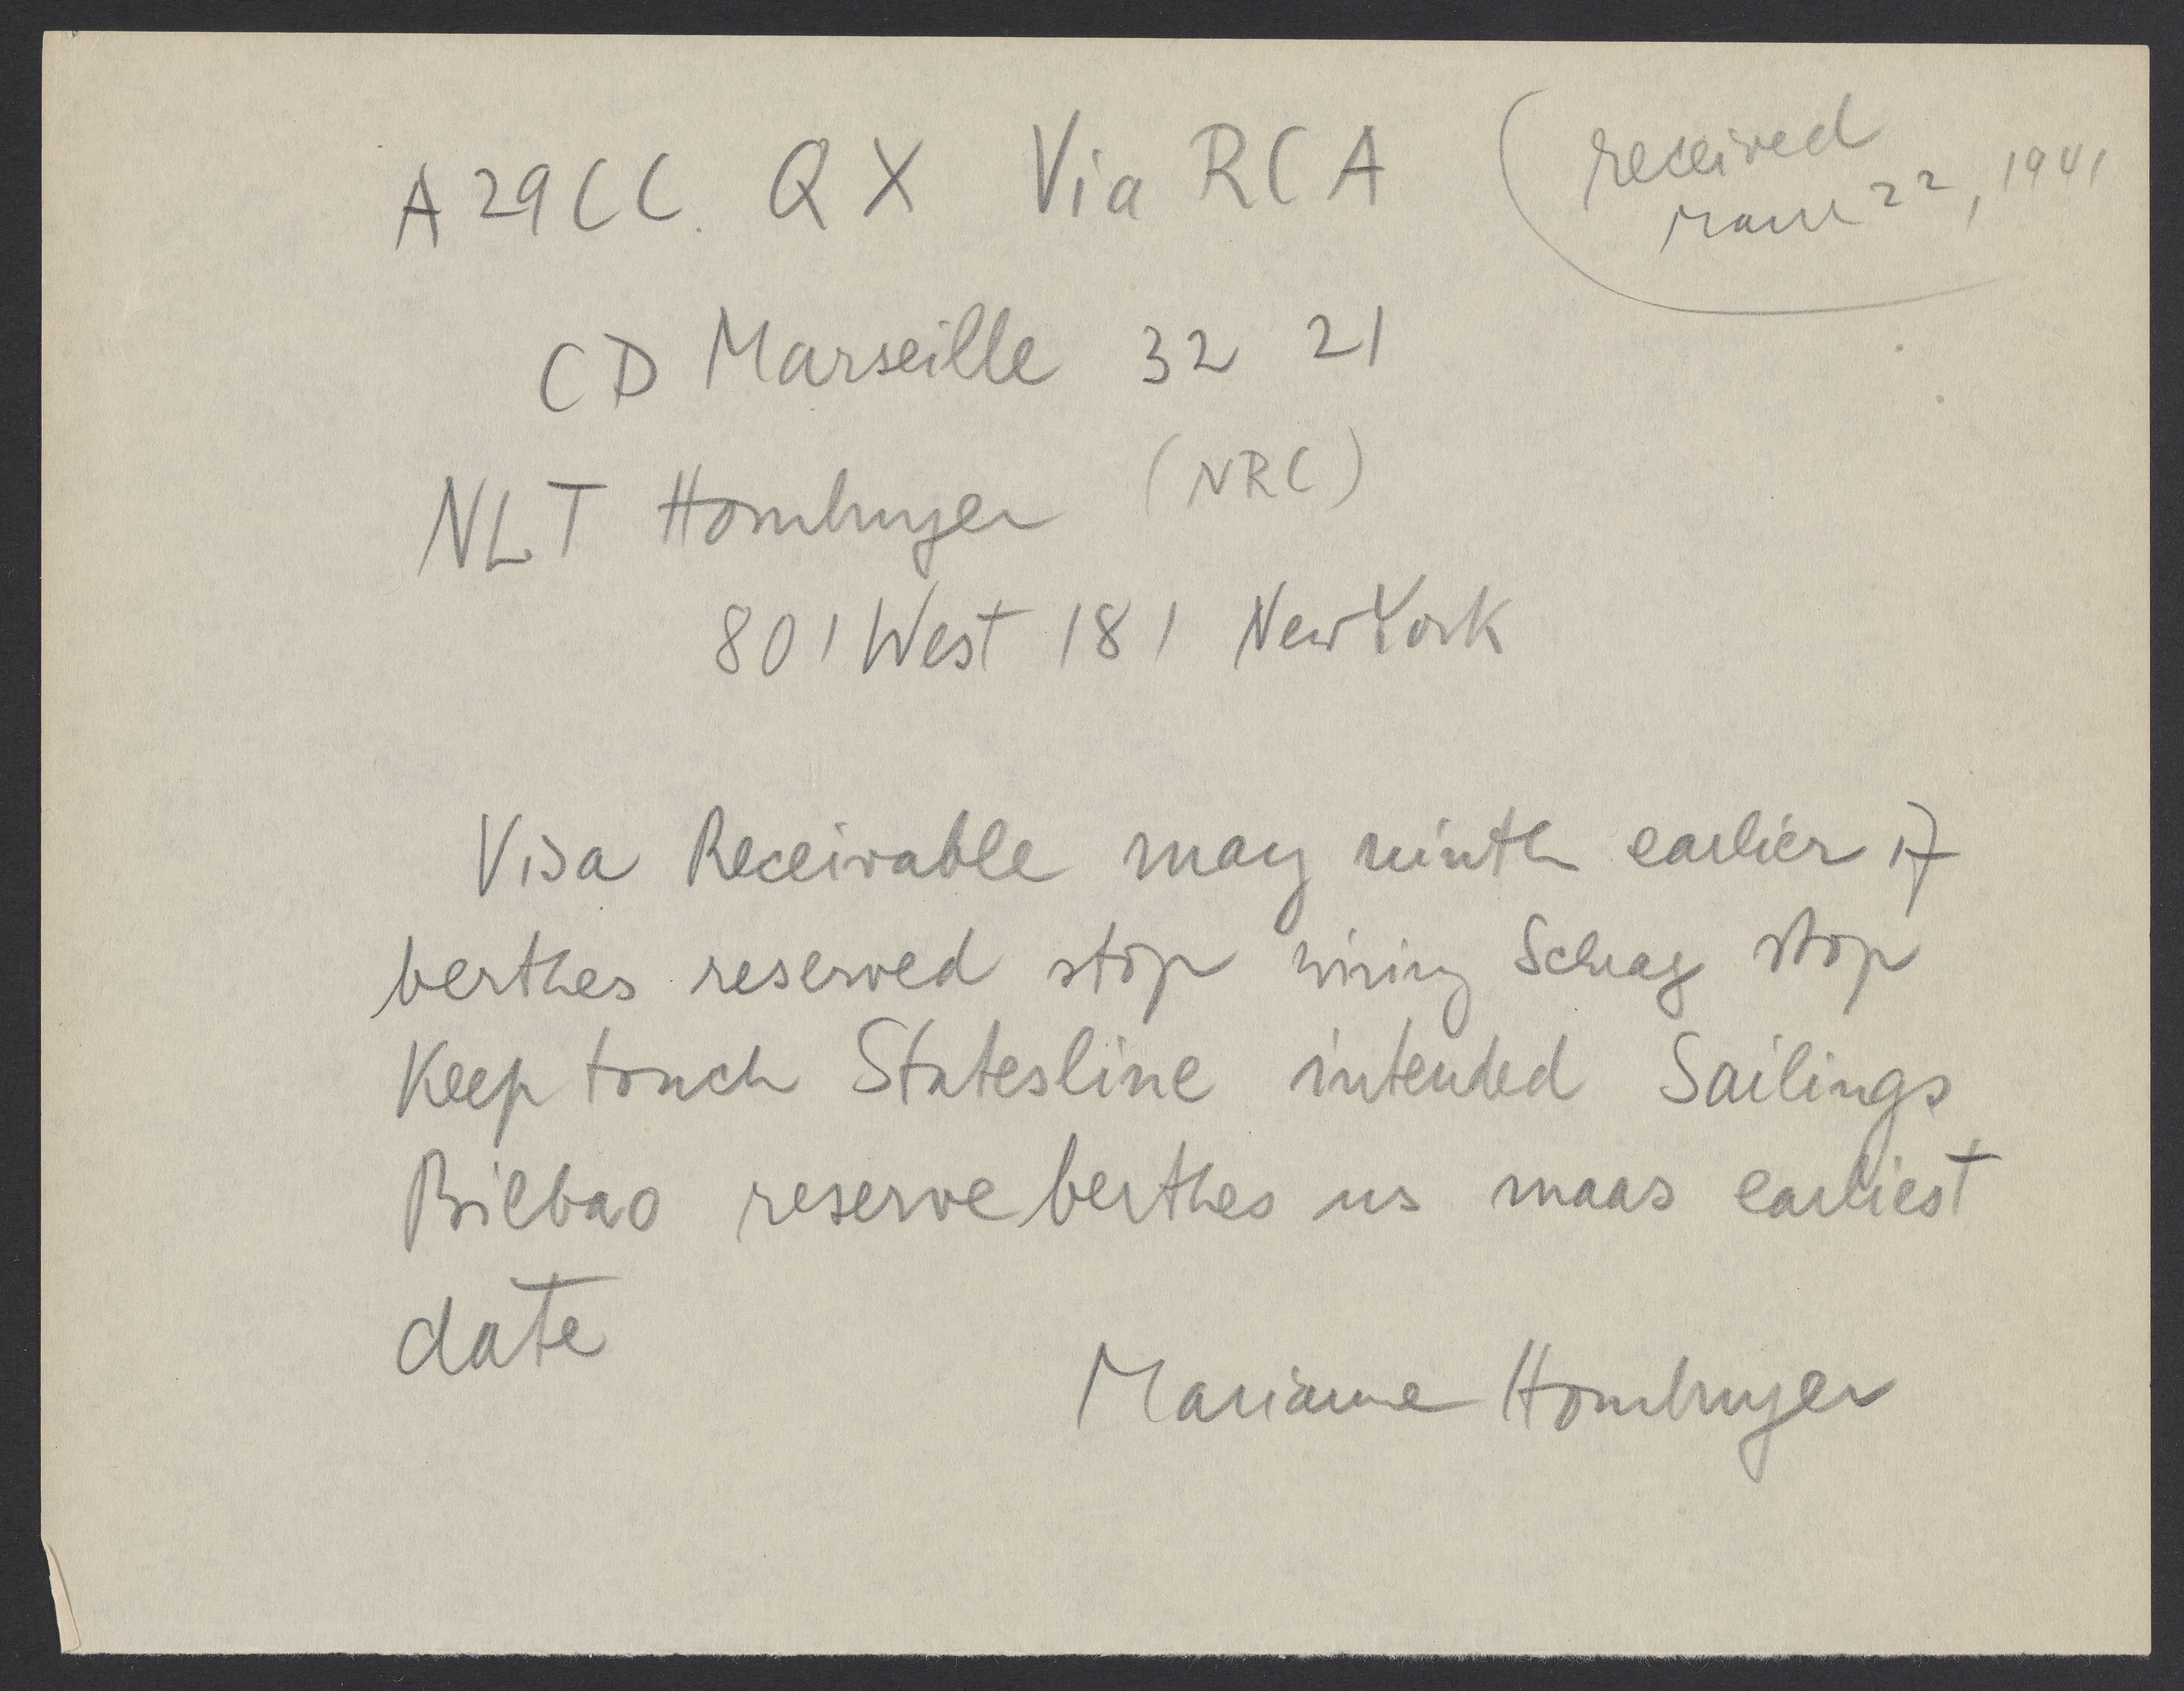 A29CC. QX Via RCA
(received
March 22, 1941
CD Marseille 32 21
NLT Homburger (NRC)
801 West 181 New York
Visa Receivable may ninth earlier if
berthes reserved stop wiring Schag stop
Keep touch Statesline intended Sailings
Bilbao reserve berthes us maas earliest
date
Marianne Homburger